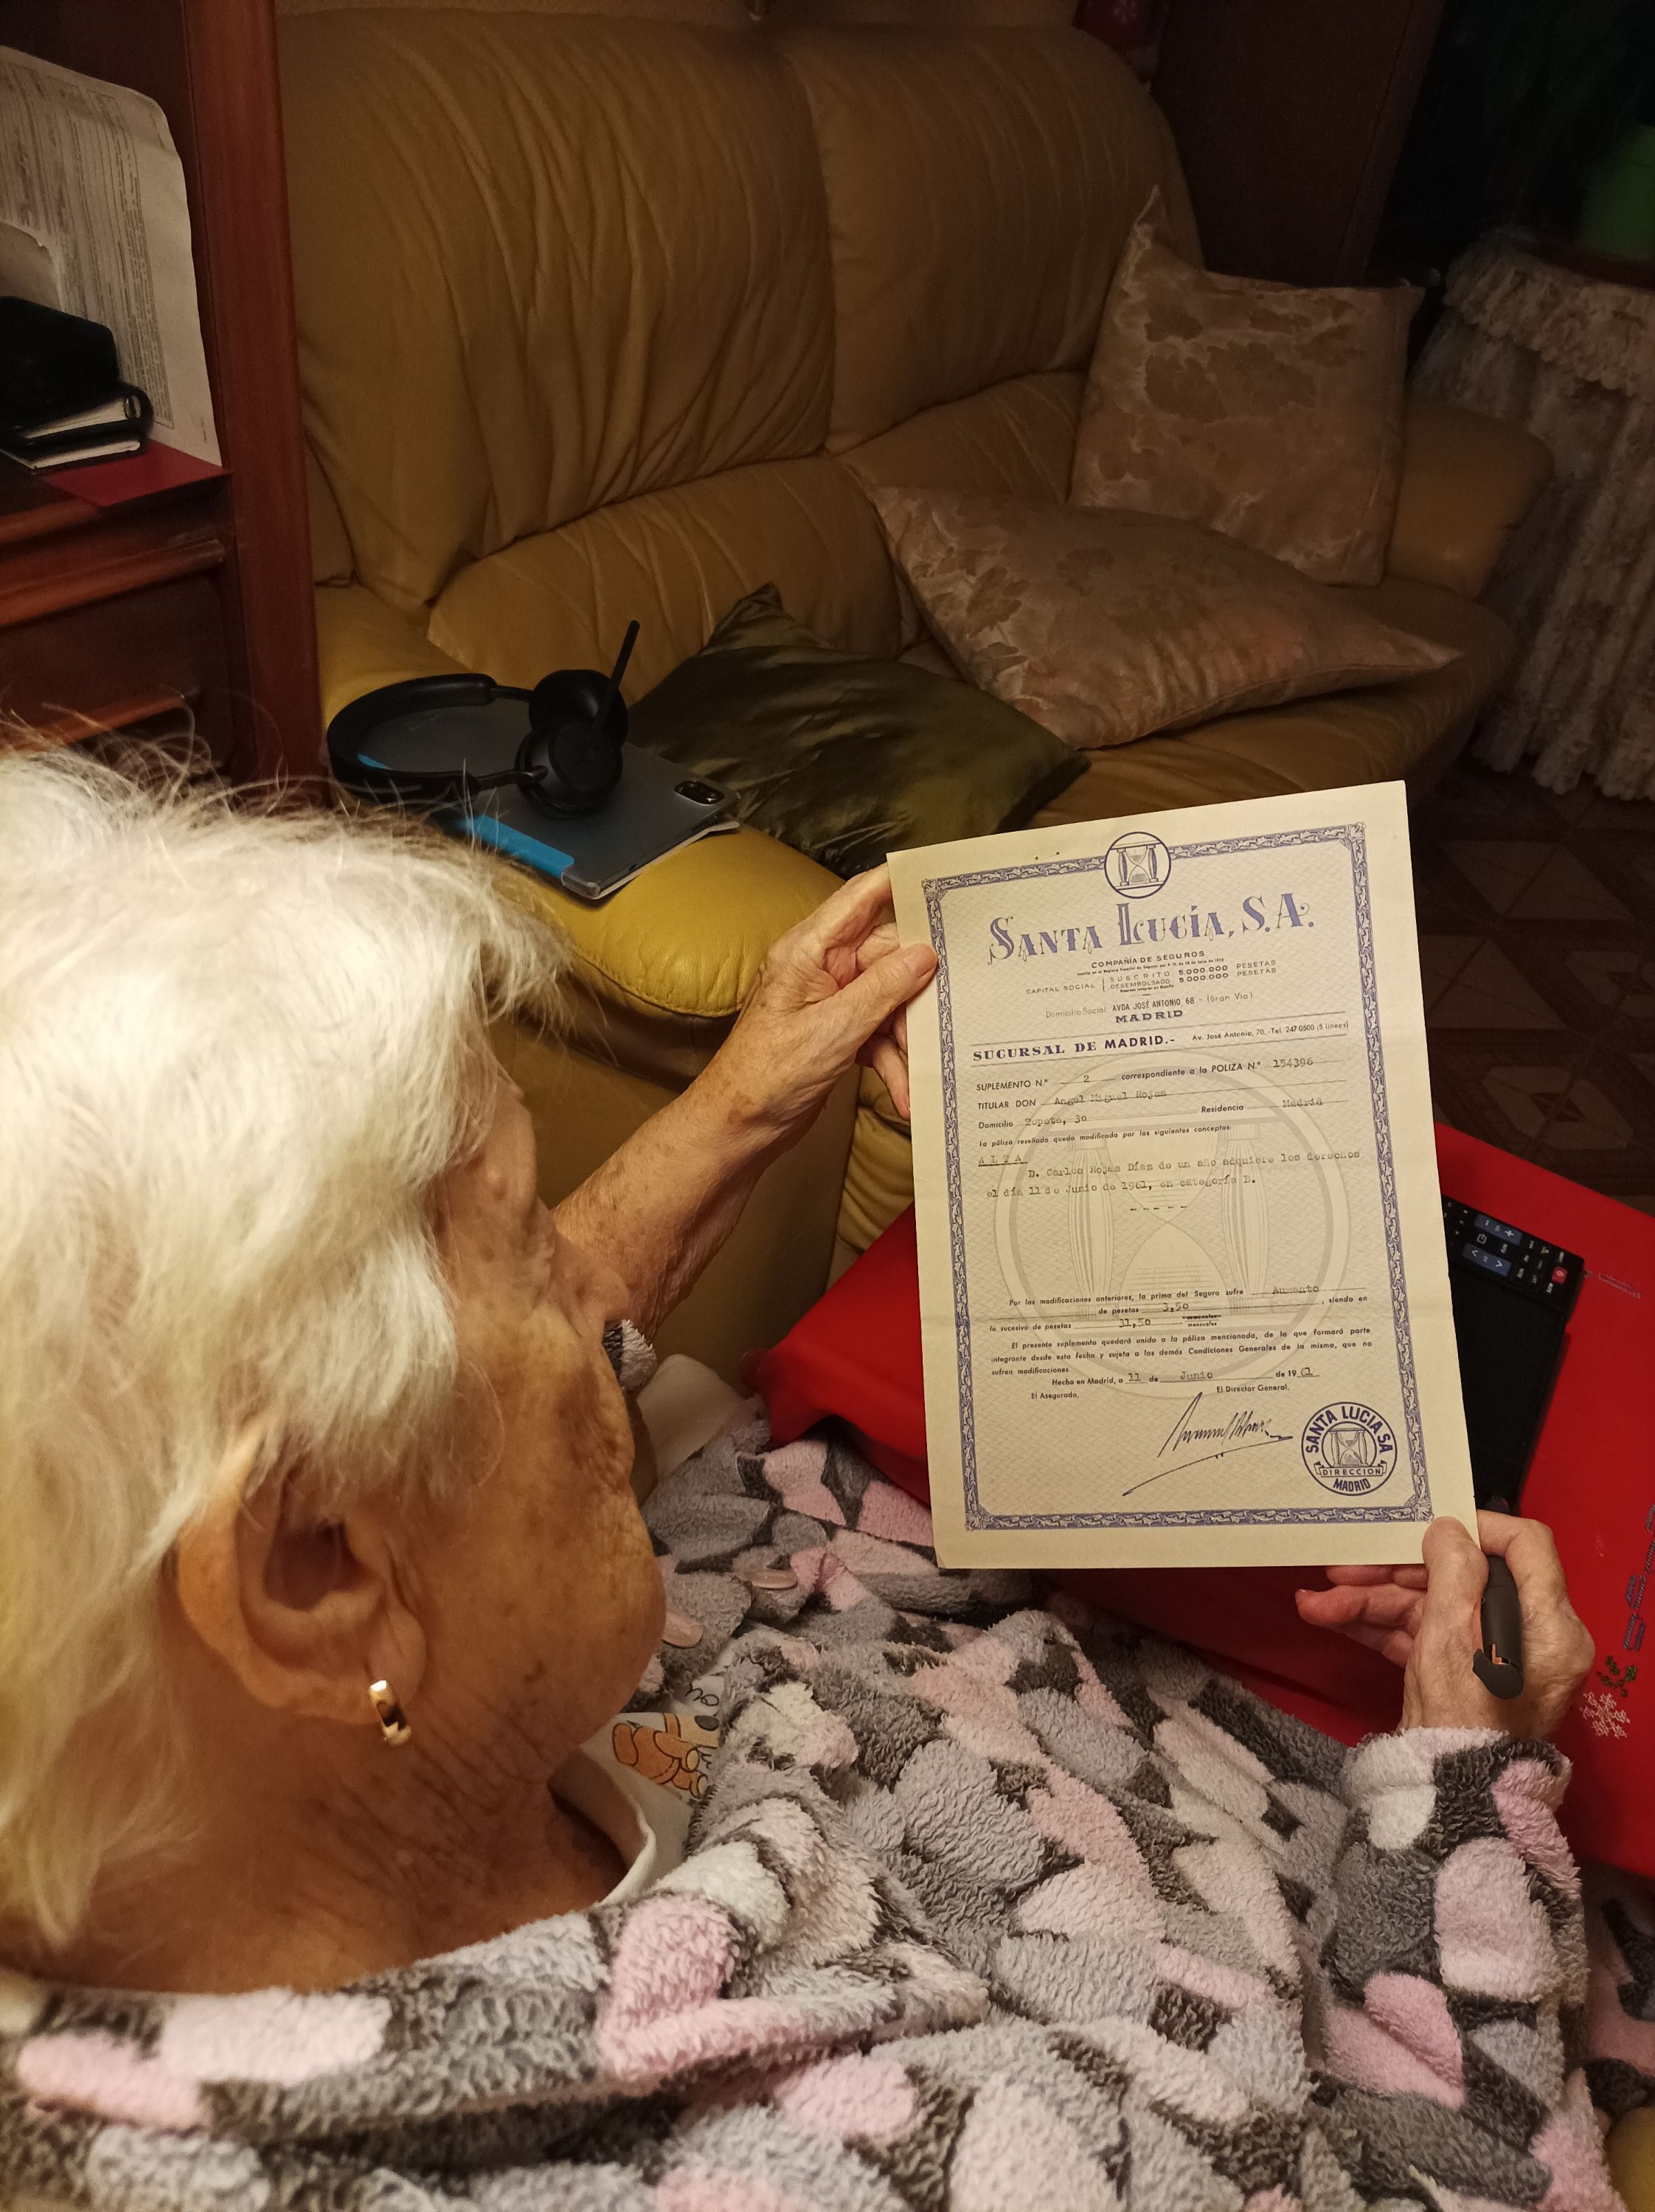 SANTA LUCÍA, S.A.
COMPAÑÍA DE SEGUROS
CAPITAL SOCIAL
SUSCRITO 5.000.000 PESETAS
DESEMBOLSADO 5.000.000 PESETAS
Domicilio Social: AVDA JOSÉ ANTONIO, 68 - (Gran Vía)
MADRID
SUCURSAL DE MADRID.- Av. José Antonio, 70,-Tel. 247 0500 (5 líneas)
SUPLEMENTO N.º 2 correspondiente a la POLIZA N.º 154396
TITULAR DON Angel Miguel Rojas
Domicilio 30 Residencia Madrid
la póliza reseñada queda modificada por los siguientes conceptos:
ALTA
D. Carlos Rojas Días de un año adquiere los derechos
el día 11 de Junio de 1961, en categoría B.
Por las modificaciones anteriores, la prima del Seguro sufre Aumento
de pesetas 3,50, siendo en
lo sucesivo de pesetas 31,50 mensuales
El presente suplemento quedará unido a la póliza mencionada, de la que formará parte
integrante desde esta fecha y sujeta a las demás Condiciones Generales de la misma, que no
sufren modificaciones.
Hecho en Madrid, a 11 de Junio de 1961
El Asegurado, El Director General,
SANTA LUCIA SA
DIRECCION
MADRID